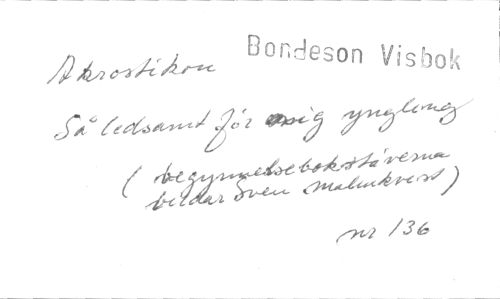 Akrostikon Bondeson Visbok
Så ledsamt för mig yngling
(begynnelsebokstäverna
bildar Sven Malmkvist)
nr 136